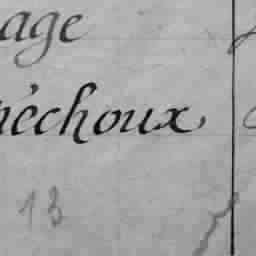 age
néchoux
13